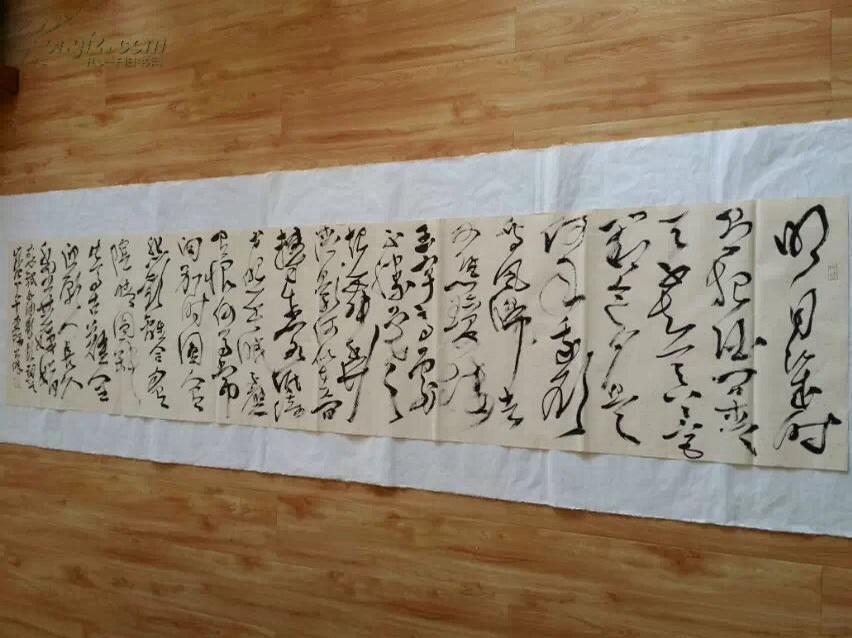 明月几时
有把酒问青
天不知天上宫
阙今夕是
何年我欲
乘风归去
又恐琼楼
玉宇高处
不胜寒
起舞弄
清影何似在人间
转朱阁低绮
户照无眠不应
有恨何事长
向别时圆人有
悲欢离合月有
阴晴圆缺
此事古难全
但愿人长久
千里共婵娟